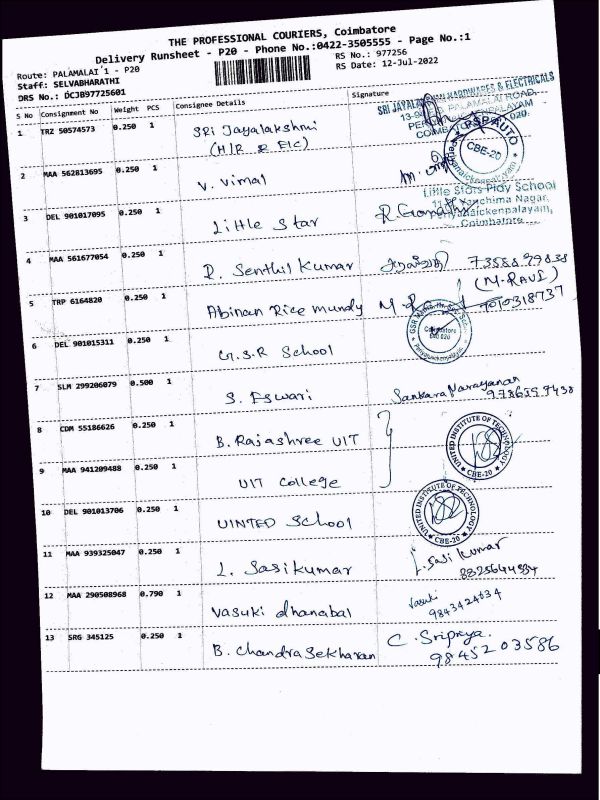 THE PROFESSIONAL COURIERS, Coimbatore
Delivery Runsheet - P20 - Phone No.:0422-3505555 - Page No.:1
Route: PALAMALAI 1 - P20
RS No.: 977256
Staff: SELVABHARATHI
RS Date: 12-Jul-2022
DRS No.: DCJB97725601
S No Consignment No Weight PCS Consignee Details Signature
1 TRZ 50574573 0.250 1 SRi Jayalakshmi
(H/R & E/C)
SRI JAYALAKSHMI HARDWARES & ELECTRICALS
PALAMALAI ROAD,
COIMBATORE 020.
RSP AUTO
CBE-20
2 MAA 562813695 0.250 1 V. Vimal
3 DEL 901017095 0.250 1 Little Star
Little Stars Play School
Kanchima Nagar,
Coimbatore
4 MAA 561677054 0.250 1 R. Senthil Kumar
5 TRP 6164820 0.250 1 Abinan Rice mundy
(M. RAVI)
7010318737
6 DEL 901015311 0.250 1 G.S.R School
Coimbatore
641 020
7 SLM 299206079 0.500 1 S. Eswari Sankara Narayanan
8 CDM 55186626 0.250 1 B. Rajashree UIT
UNITED INSTITUTE OF TECHNOLOGY
CBE-20
9 MAA 941209488 0.250 1 UIT College
10 DEL 901013706 0.250 1 UINTED School
UNITED INSTITUTE OF TECHNOLOGY
CBE-20
11 MAA 939325047 0.250 1 L. Sasikumar L. Sasi Kumar
12 MAA 290508968 0.790 1 Vasuki dhanabal Vasuki
9843424634
13 SRG 345125 0.250 1 B. Chandrasekharan C. Sripriya.
9845203586